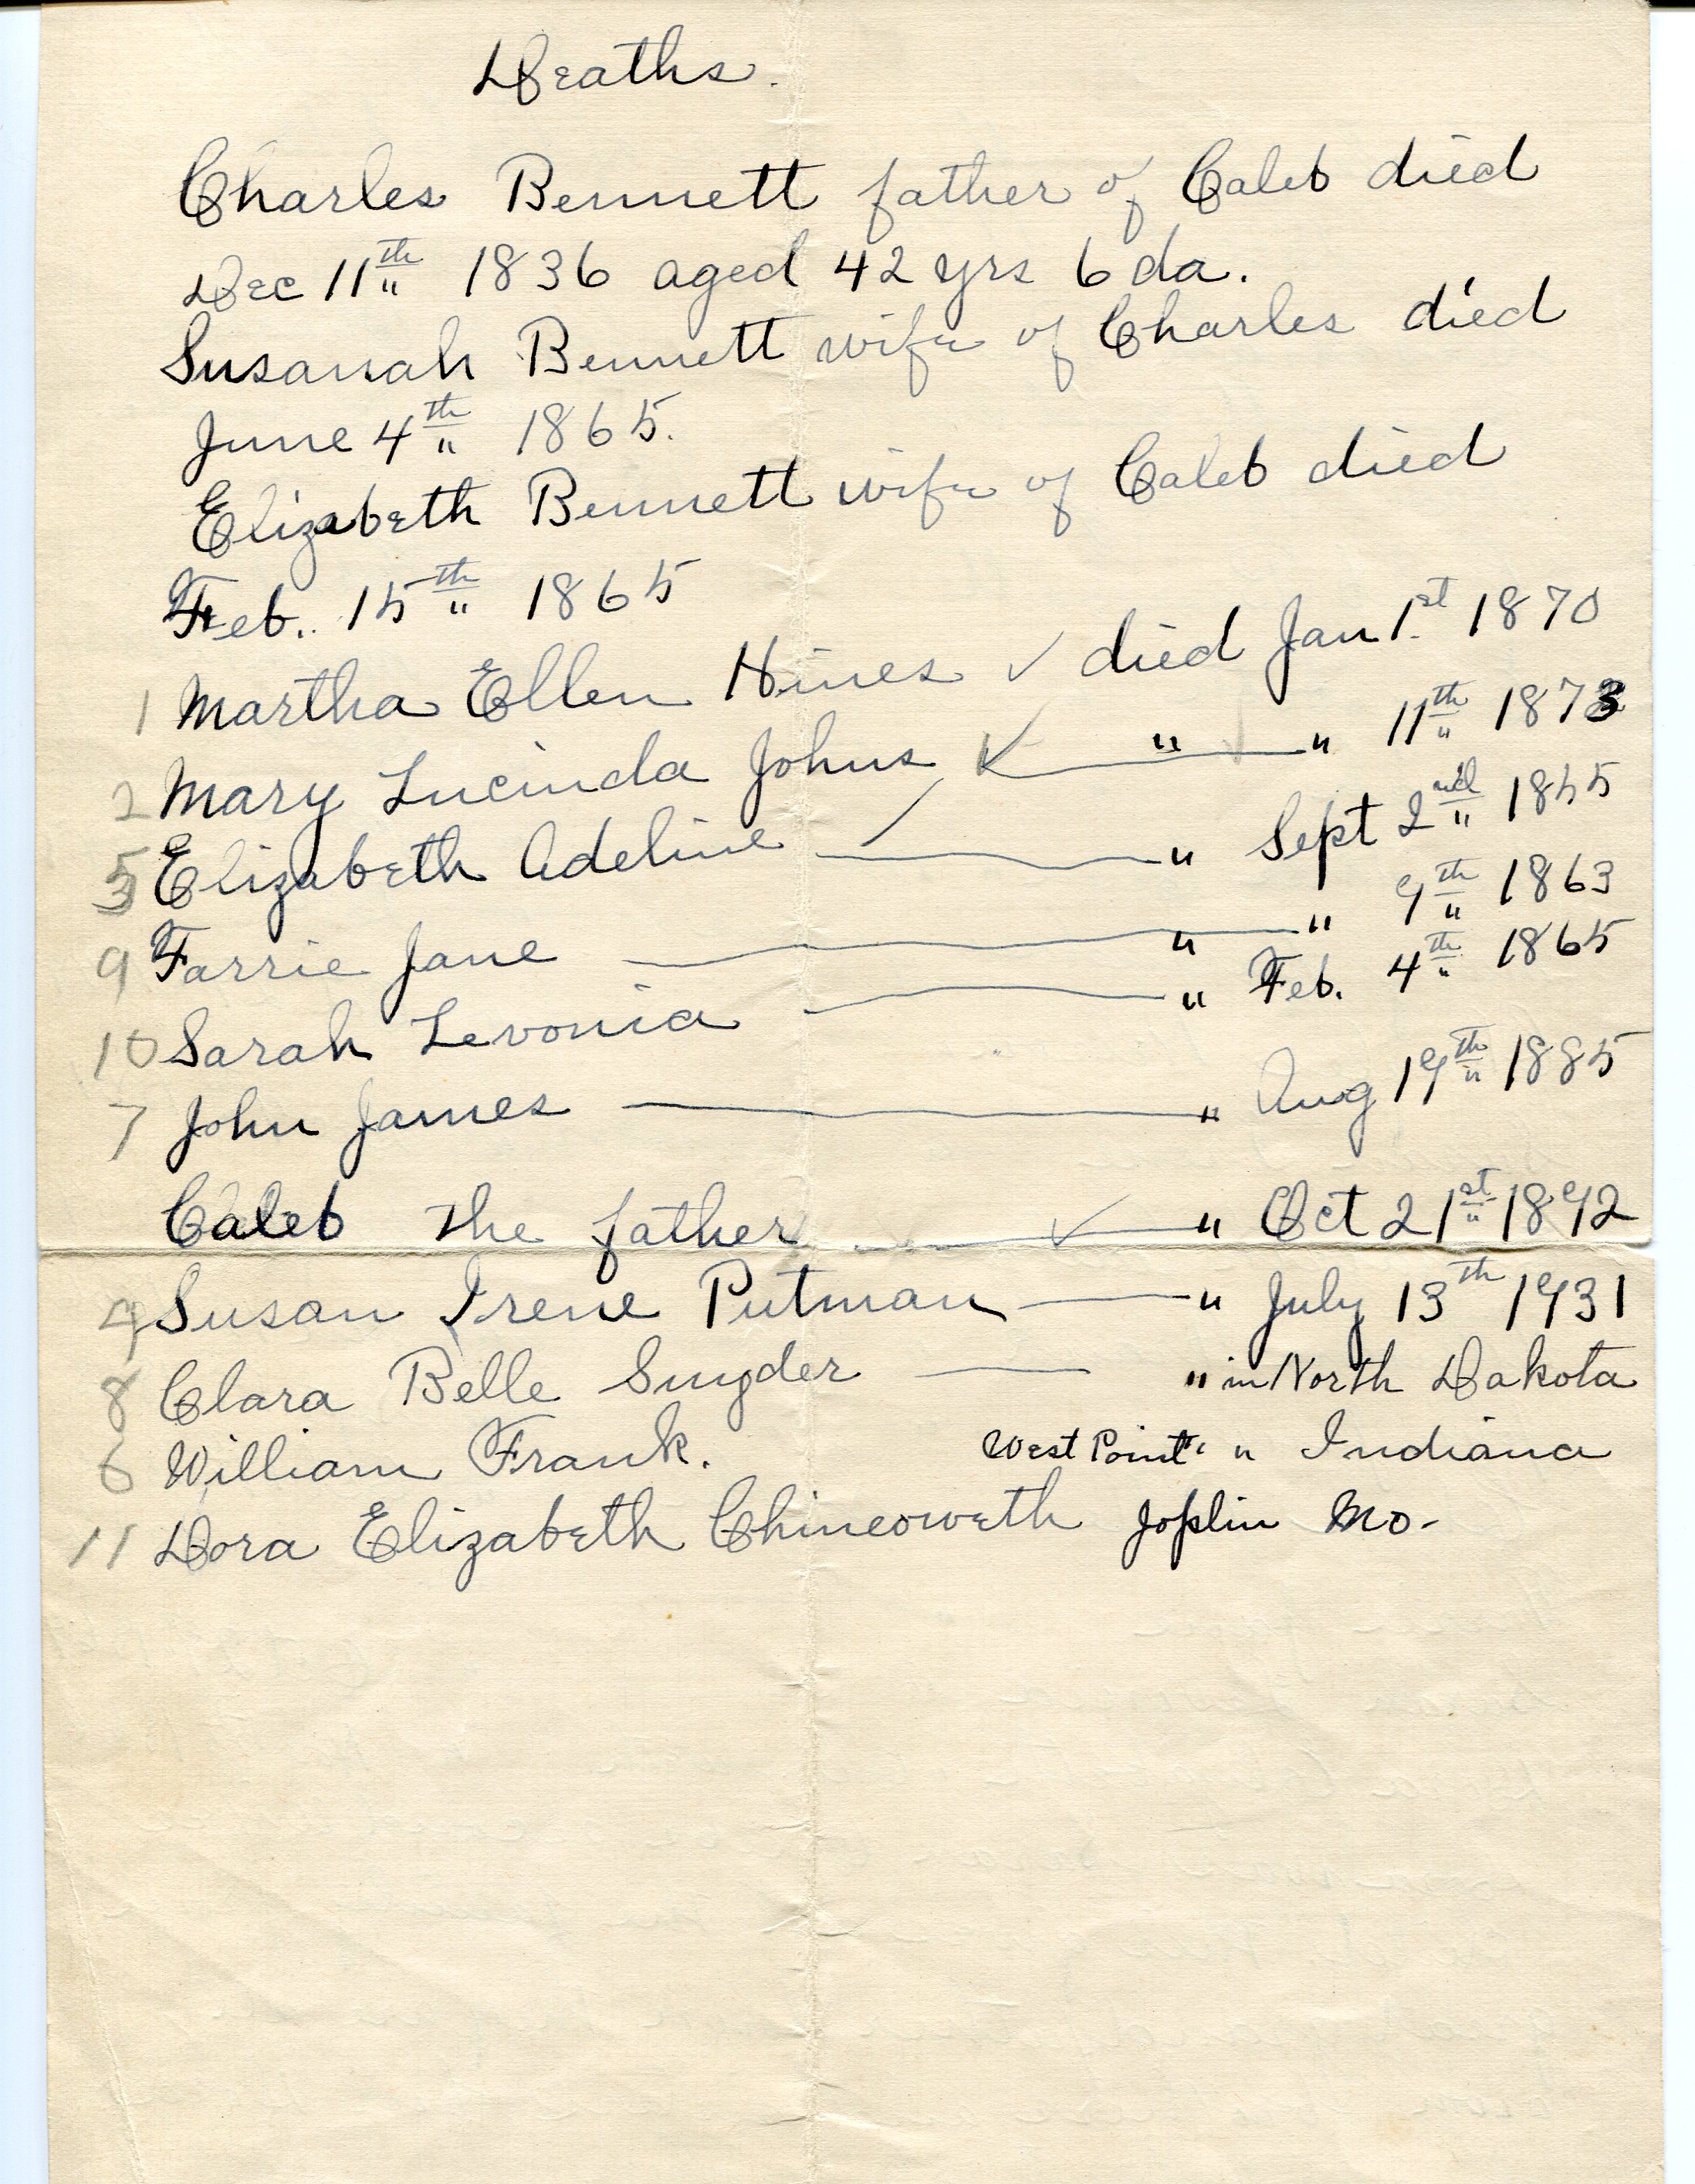 Deaths.
Charles Bennett father of Caleb died
Dec 11th 1836 aged 42 yrs 6 da.
Susanah Bennett wife of Charles died
June 4th 1865.
Elizabeth Bennett wife of Caleb died
Feb. 15th 1865
1 Martha Ellen Hines ✓ died Jan 1st 1870
2 Mary Lucinda Johns ✓ " " 11th 1873
Elizabeth Adeline " Sept 2nd 1855
9 Farrie Jane " " 9th 1863
10 Sarah Levonia " Feb. 4th 1865
7 John James " Aug 19th 1885
Caleb the father ✓ " Oct 21st 1892
4 Susan Irene Putman " July 13th 1931
8 Clara Belle Snyder " in North Dakota
6 William Frank. West Point " Indiana
11 Dora Elizabeth Chineoweth Joplin Mo-